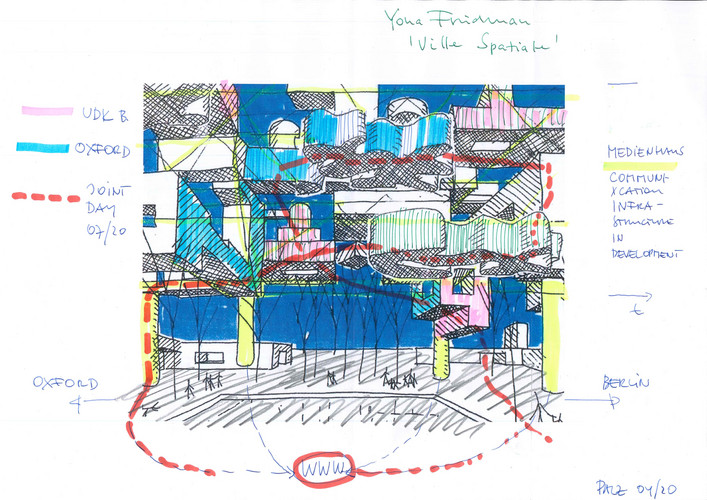 Yona Friedman
'Ville Spatiale'
UDK B
OXFORD
JOINT
DAY
07/20
MEDIENHAUS
COMMUNI-
XCATION
INFRA-
STRUCTURE
IN
DEVELOPMENT
t
OXFORD
BERLIN
WWW
04/20